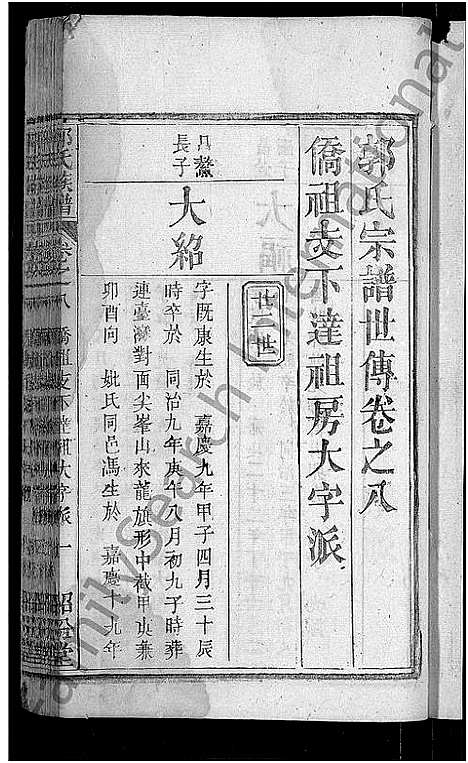 郭氏宗譜世傳卷之八
僑祖支下達祖房大字派
廿二世
呂鰲長子
大紹
字既康生於 嘉慶九年甲子四月三十辰
時卒於 同治九年庚午八月初九子時葬
連臺灣對面尖峯山來龍旗形中截甲庚兼
卯酉向 妣氏同邑馮生於 嘉慶十九年
郭氏族譜 卷之八 僑祖支下達祖大字派 一
FamilySearch International